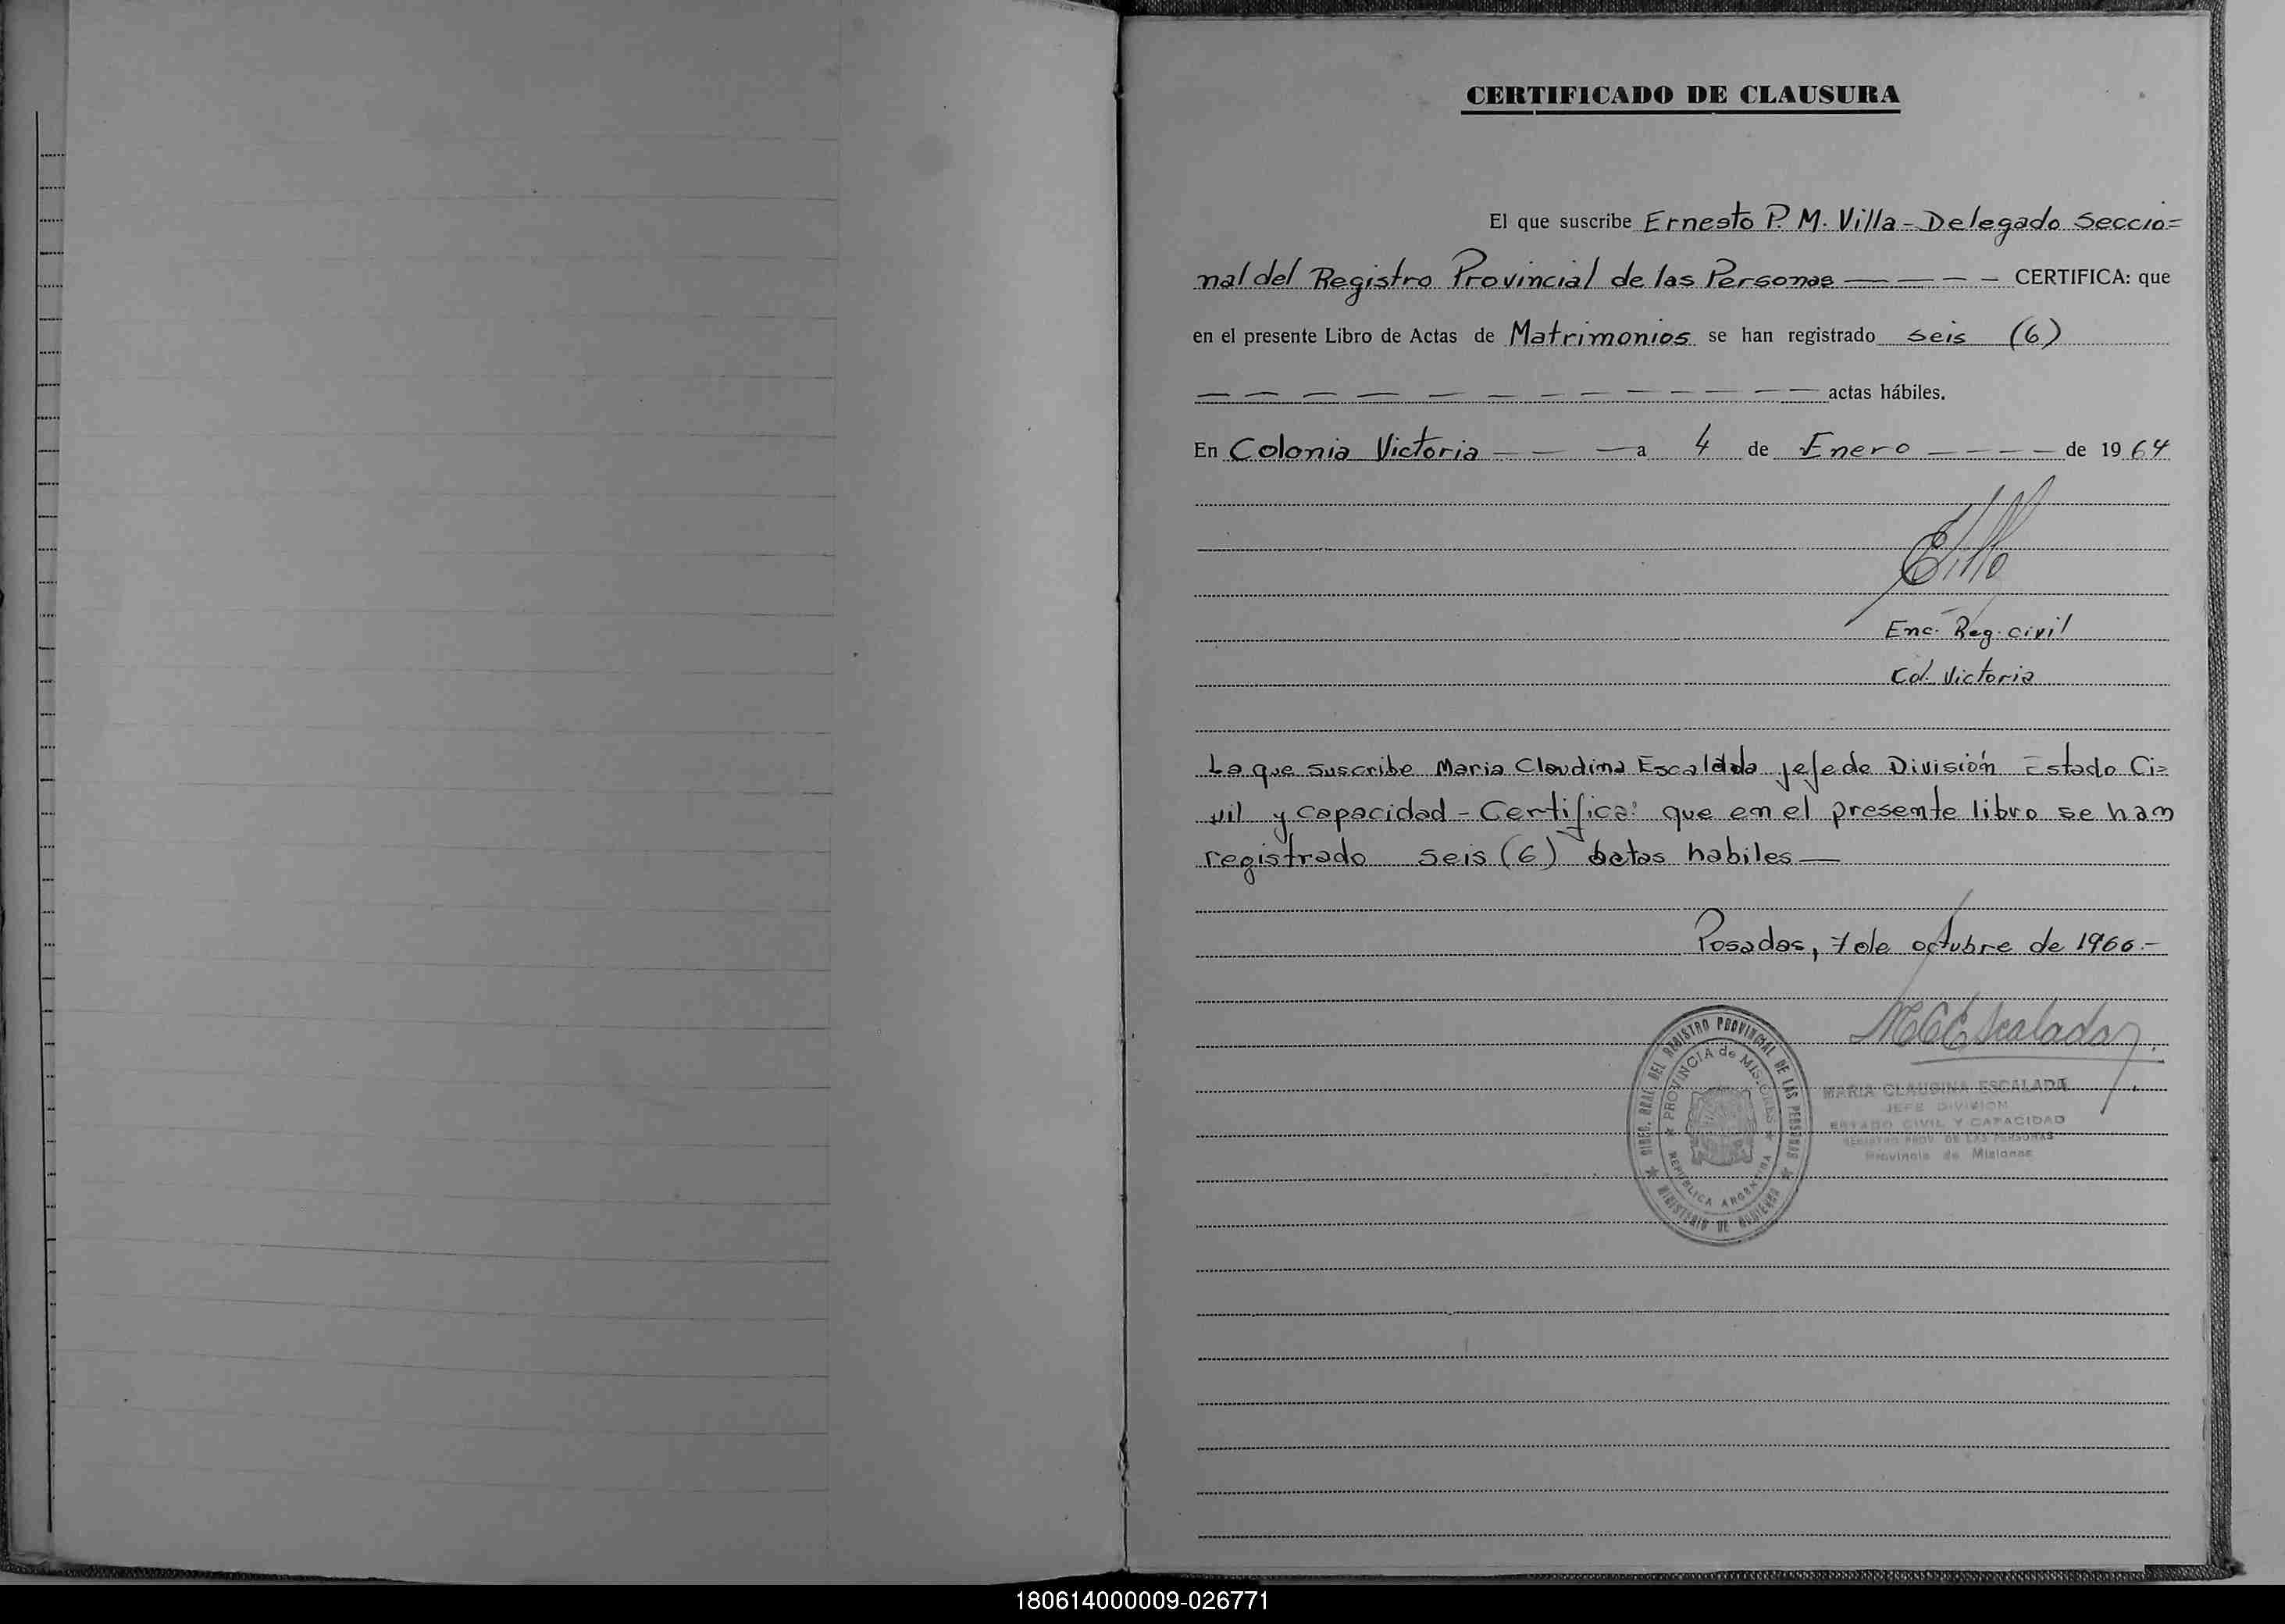 CERTIFICADO DE CLAUSURA
El que suscribe Ernesto P. M. Villa - Delegado Seccio=
nal del Registro Provincial de las Personas — — — — CERTIFICA: que
en el presente Libro de Actas de Matrimonios se han registrado seis (6)
— — — — — — — — — — — — — actas hábiles.
En Colonia Victoria — — — a 4 de Enero — — — — de 1964
Enc. Reg. civil
Col. Victoria
La que suscribe Maria Claudina Escalada jefe de División Estado Ci=
vil y capacidad - Certifica: que en el presente libro se han
registrado seis (6) actas habiles —
Posadas, 7 de octubre de 1966.-
MCEscalada
DIREC. GRAL. DEL REGISTRO PROVINCIAL DE LAS PERSONAS
PROVINCIA de MISIONES
REPUBLICA ARGENTINA
MINISTERIO DE GOBIERNO
MARIA CLAUDINA ESCALADA
JEFE DIVISION
ESTADO CIVIL Y CAPACIDAD
REGISTRO PROV. DE LAS PERSONAS
Provincia de Misiones
180614000009-026771